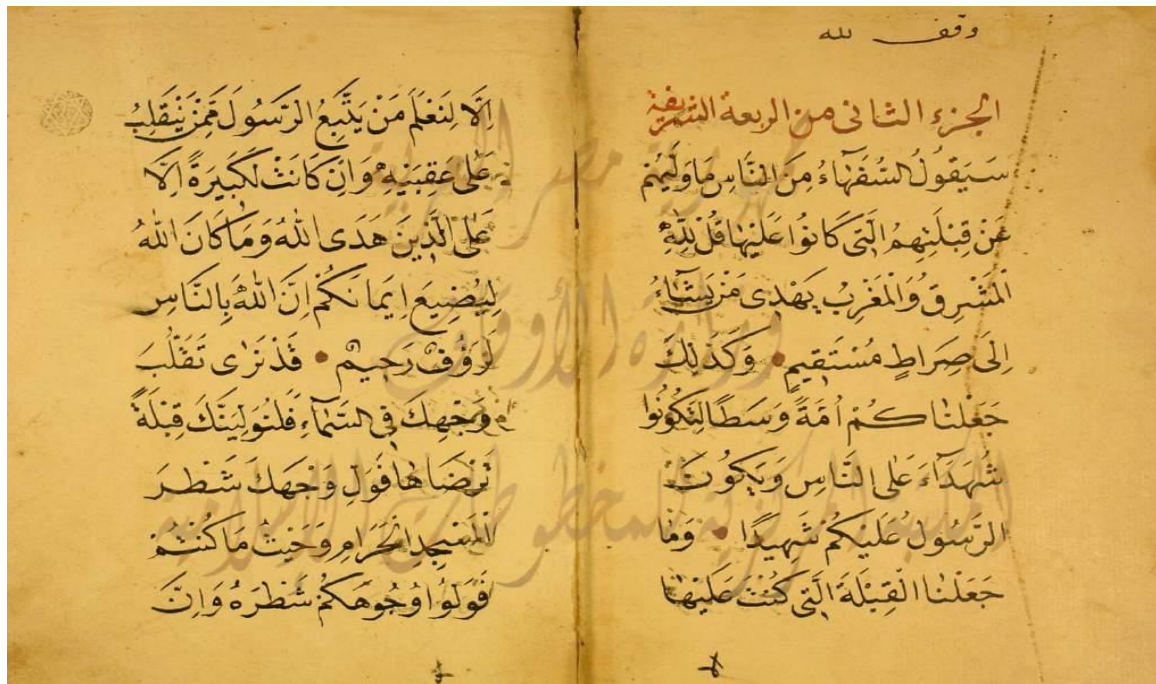 وقف لله
الجزء الثانى من الربعة الشريفة
سَيَقُولُ السُّفَهَاءُ مِنَ النَّاسِ مَا وَلّٰيهُمْ
عَنْ قِبْلَتِهِمُ الَّتِى كَانُوا عَلَيْهَا قُلْ لِلّٰهِ
الْمَشْرِقُ وَالْمَغْرِبُ يَهْدِى مَنْ يَشَاءُ
اِلٰى صِرَاطٍ مُسْتَقِيمٍ وَكَذٰلِكَ
جَعَلْنَا كُمْ اُمَّةً وَسَطًا لِتَكُونُوا
شُهَدَآءَ عَلَى النَّاسِ وَيَكُونَ
الرَّسُولُ عَلَيْكُمْ شَهِيدًا وَمَا
جَعَلْنَا الْقِبْلَةَ الَّتِى كُنْتَ عَلَيْهَا
اِلَّا لِنَعْلَمَ مَنْ يَتَّبِعُ الرَّسُولَ مِمَّنْ يَنْقَلِبُ
عَلٰى عَقِبَيْهِ وَاِنْ كَانَتْ لَكَبِيرَةً اِلَّا
عَلَى الَّذِينَ هَدَى اللّٰهُ وَمَا كَانَ اللّٰهُ
لِيُضِيعَ اِيمَانَكُمْ اِنَّ اللّٰهَ بِالنَّاسِ
لَرَؤُفٌ رَحِيمٌ قَدْ نَرٰى تَقَلُّبَ
وَجْهِكَ فِى السَّمَآءِ فَلَنُوَلِّيَنَّكَ قِبْلَةً
تَرْضَاهَا فَوَلِّ وَجْهَكَ شَطْرَ
الْمَسْجِدِ الْحَرَامِ وَحَيْثُ مَا كُنْتُمْ
فَوَلُّوا وُجُوهَكُمْ شَطْرَهُ وَاِنَّ